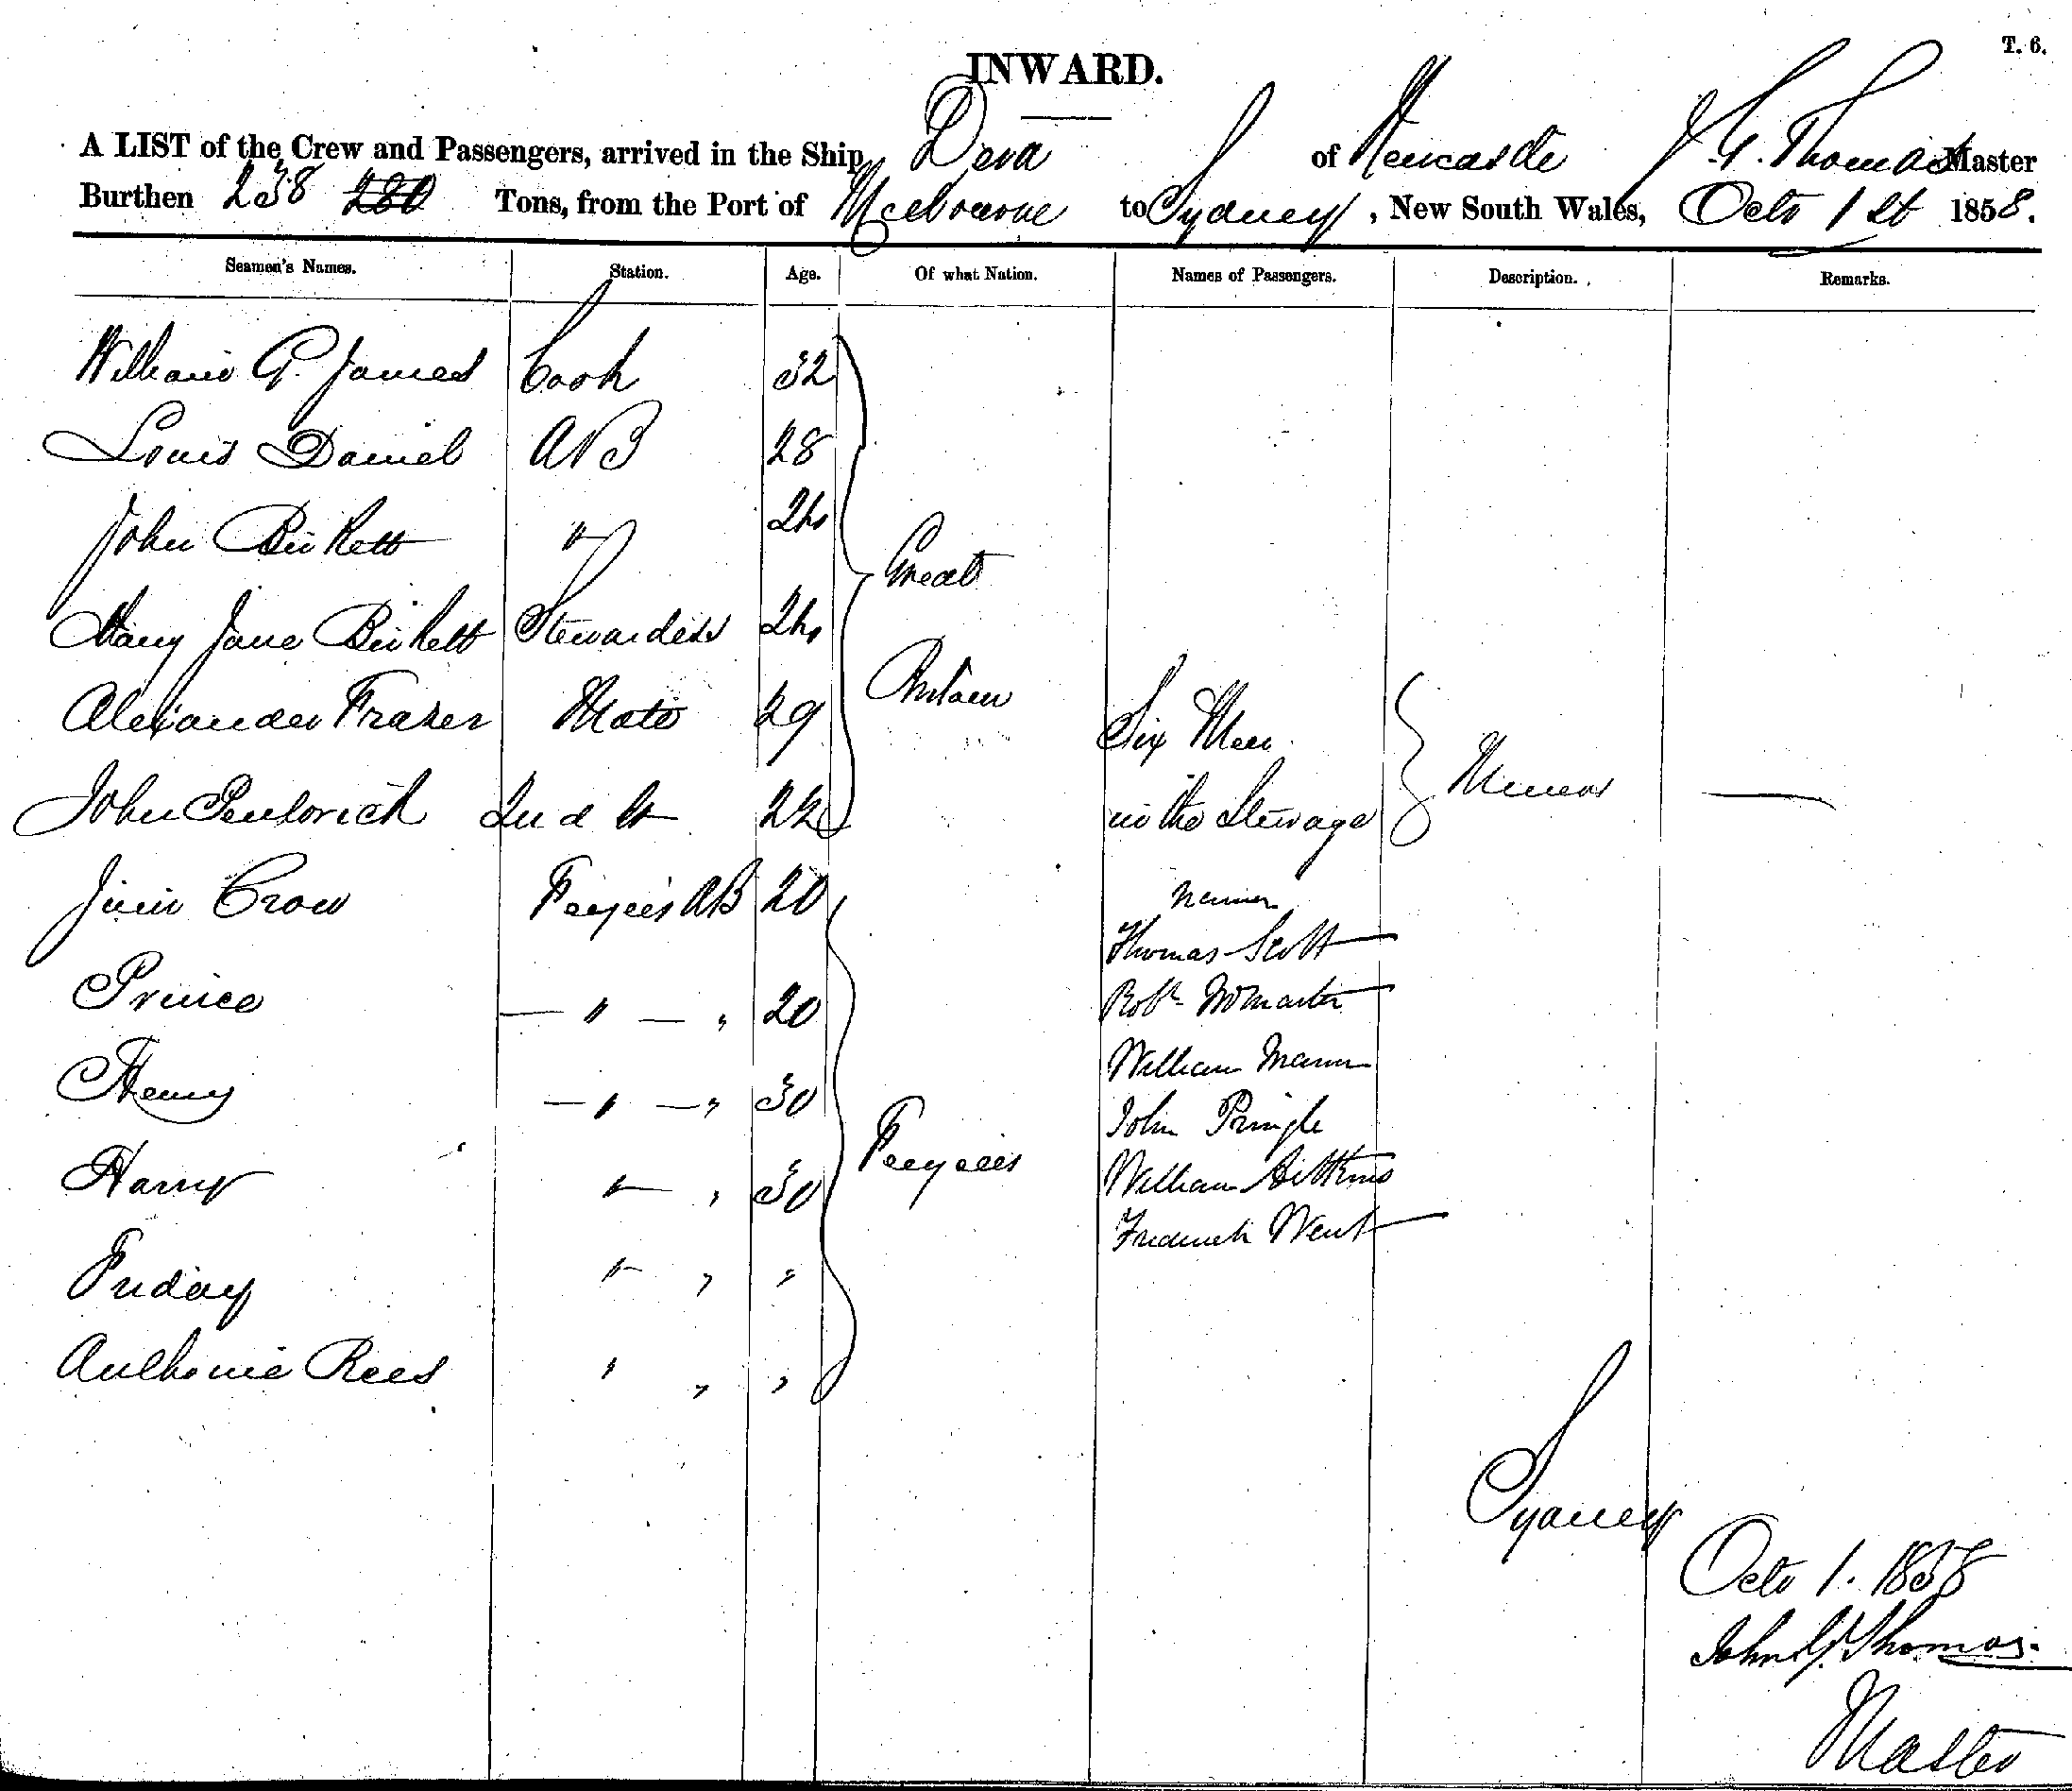 T. 6.
INWARD.
A LIST of the Crew and Passengers, arrived in the Ship Deva of Newcastle J. G. Thomas Master
Burthen 238 280 Tons, from the Port of Melbourne to Sydney, New South Wales, Octo 1 st 1858.
Seamen's Names. Station. Age. Of what Nation. Names of Passengers. Description. Remarks.
William G. James Cook 32
Louis Daniel AB 28
John Birkett " 24
Great
Mary Jane Birkett Stewardess 24
Britain
Alexander Fraser Mate 29 Six Men
Miners
John 22 in the Steerage
Jim Crow AB 20 names
Thomas Scott
Prince — " — " 20 Robt McMaster
William Mann
Henry — " — " 30 John Pringle
Harry " " 30 William Aitkins
Frederick Went
Friday " " "
Anthonie Rees " " "
Sydney
Octo 1. 1858
John G. Thomas.
Master